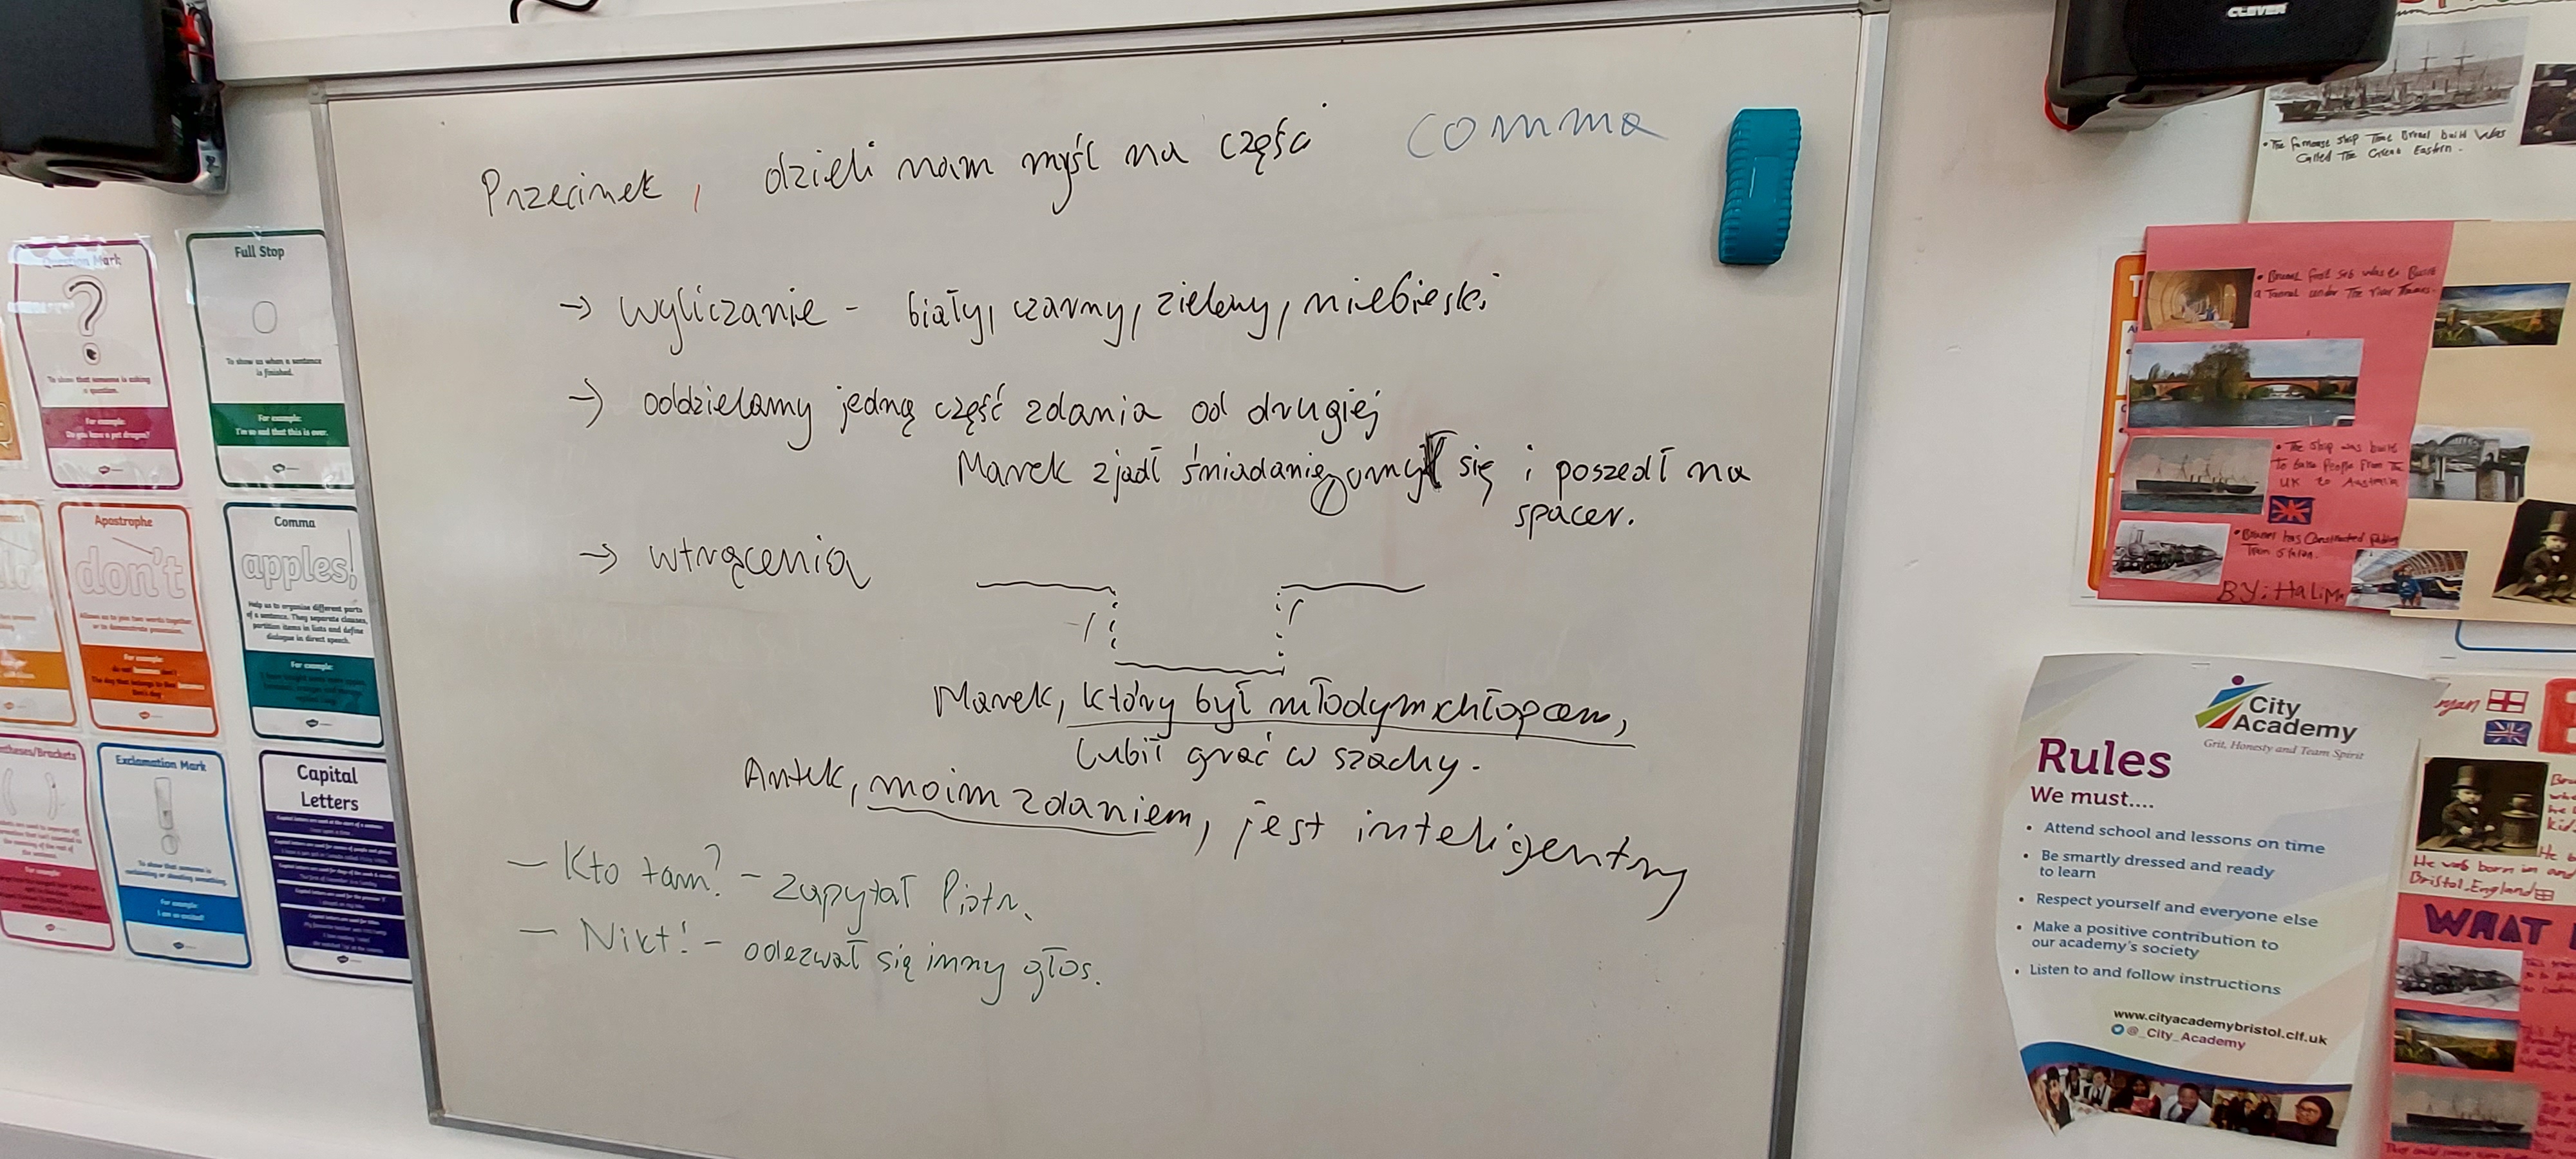 CLEVER
Przecinek , dzieli nam myśl na części comma
→ wyliczanie - biały, czarny, zielony, niebieski
→ oddzielamy jedną część zdania od drugiej
Marek zjadł śniadanie, umył się i poszedł na
spacer.
→ wtrącenia
Marek, który był młodym chłopcem,
lubił grać w szachy.
Antek, moim zdaniem, jest inteligentny
- Kto tam? - zapytał Piotr.
- Nikt! - odezwał się inny głos.
Question Mark
?
To show that someone is asking
a question.
For example:
Do you have a pet dragon?
Full Stop
To show us when a sentence
is finished.
For example:
I'm so sad that this is over.
Apostrophe
don't
Allows us to join two words together
or to demonstrate possession.
For example:
Comma
apples,
Help us to organise different parts
of a sentence. They separate clauses,
partition items in lists and define
dialogue in direct speech.
For example:
Exclamation Mark
!
To show that someone is
exclaiming or shouting something.
For example:
I am so excited!
Capital
Letters
• The famouse ship That Brenal build Was
Called The Great Eastern.
• The ship was built
To take People From The
UK to Australia
BY: HaLiMa
City
Academy
Grit, Honesty and Team Spirit
Rules
We must....
• Attend school and lessons on time
• Be smartly dressed and ready
to learn
• Respect yourself and everyone else
• Make a positive contribution to
our academy's society
• Listen to and follow instructions
www.cityacademybristol.clf.uk
@_City_Academy
He was born in and
Bristol, England
WHAT